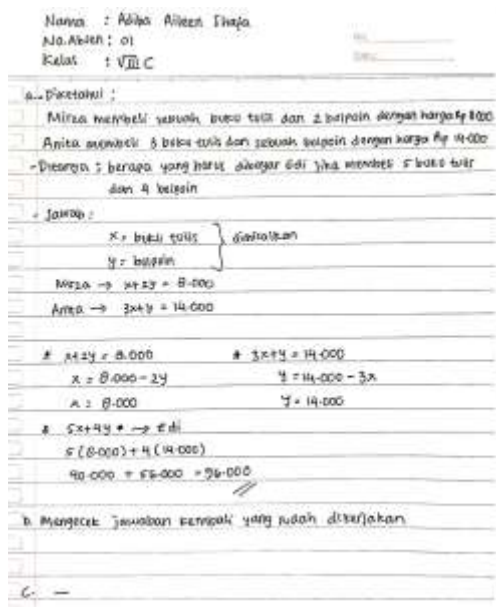 Nama : Adiba Aileen Shafa
No. Absen : 01
Kelas : VIII C
a. Diketahui :
Mirza membeli sebuah buku tulis dan 2 bolpoin dengan harga Rp 8.000
Anita membeli 3 buku tulis dan sebuah bolpoin dengan harga Rp 14.000
- Ditanya : berapa yang harus dibayar Edi jika membeli 5 buku tulis
dan 4 bolpoin
- Jawab :
x = buku tulis } dimisalkan
y = bolpoin
Mirza → x+2y = 8.000
Anita → 3x+y = 14.000
* x+2y = 8.000 * 3x+y = 14.000
x = 8.000 - 2y y = 14.000 - 3x
x = 8.000 y = 14.000
* 5x+4y → Edi
5 (8.000) + 4 (14.000)
40.000 + 56.000 = 96.000
b. Mengecek jawaban kembali yang sudah dikerjakan
c. —